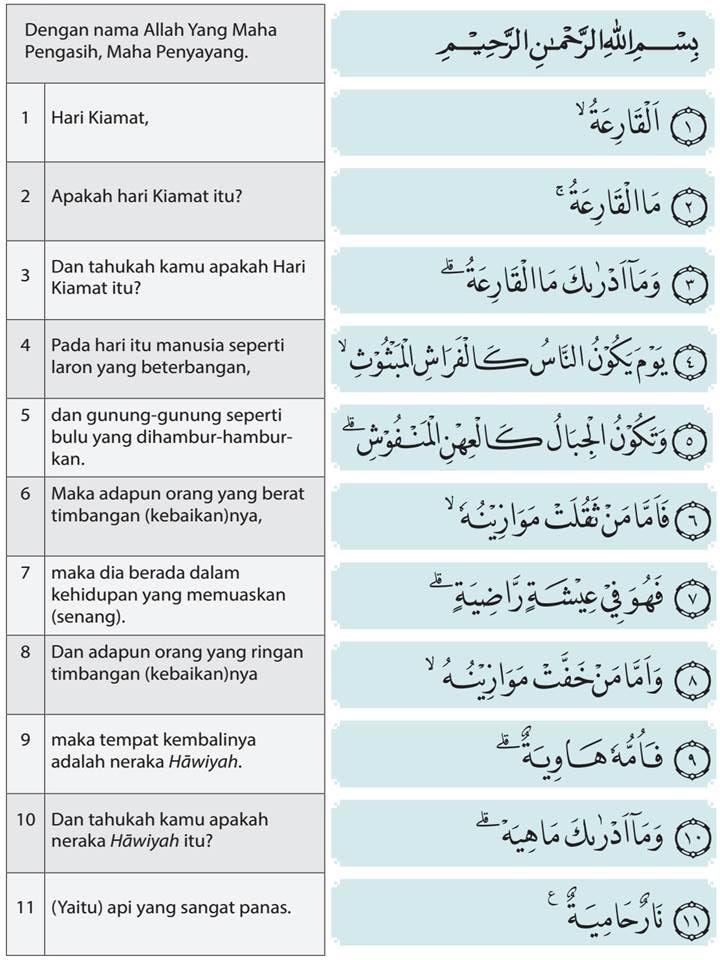 Dengan nama Allah Yang Maha
Pengasih, Maha Penyayang.
بِسْمِ اللّٰهِ الرَّحْمٰنِ الرَّحِيْمِ
1 Hari Kiamat,
اَلْقَارِعَةُۙ ١
2 Apakah hari Kiamat itu?
مَا الْقَارِعَةُۚ ٢
3 Dan tahukah kamu apakah Hari
Kiamat itu?
وَمَآ اَدْرٰىكَ مَا الْقَارِعَةُۗ ٣
4 Pada hari itu manusia seperti
laron yang beterbangan,
يَوْمَ يَكُوْنُ النَّاسُ كَالْفَرَاشِ الْمَبْثُوْثِۙ ٤
5 dan gunung-gunung seperti
bulu yang dihambur-hambur-
kan.
وَتَكُوْنُ الْجِبَالُ كَالْعِهْنِ الْمَنْفُوْشِۗ ٥
6 Maka adapun orang yang berat
timbangan (kebaikan)nya,
فَاَمَّا مَنْ ثَقُلَتْ مَوَازِيْنُهٗۙ ٦
7 maka dia berada dalam
kehidupan yang memuaskan
(senang).
فَهُوَ فِيْ عِيْشَةٍ رَّاضِيَةٍۗ ٧
8 Dan adapun orang yang ringan
timbangan (kebaikan)nya
وَاَمَّا مَنْ خَفَّتْ مَوَازِيْنُهٗۙ ٨
9 maka tempat kembalinya
adalah neraka Hāwiyah.
فَاُمُّهٗ هَاوِيَةٌۗ ٩
10 Dan tahukah kamu apakah
neraka Hāwiyah itu?
وَمَآ اَدْرٰىكَ مَا هِيَهْۗ ١٠
11 (Yaitu) api yang sangat panas.
نَارٌ حَامِيَةٌ ࣖ ١١